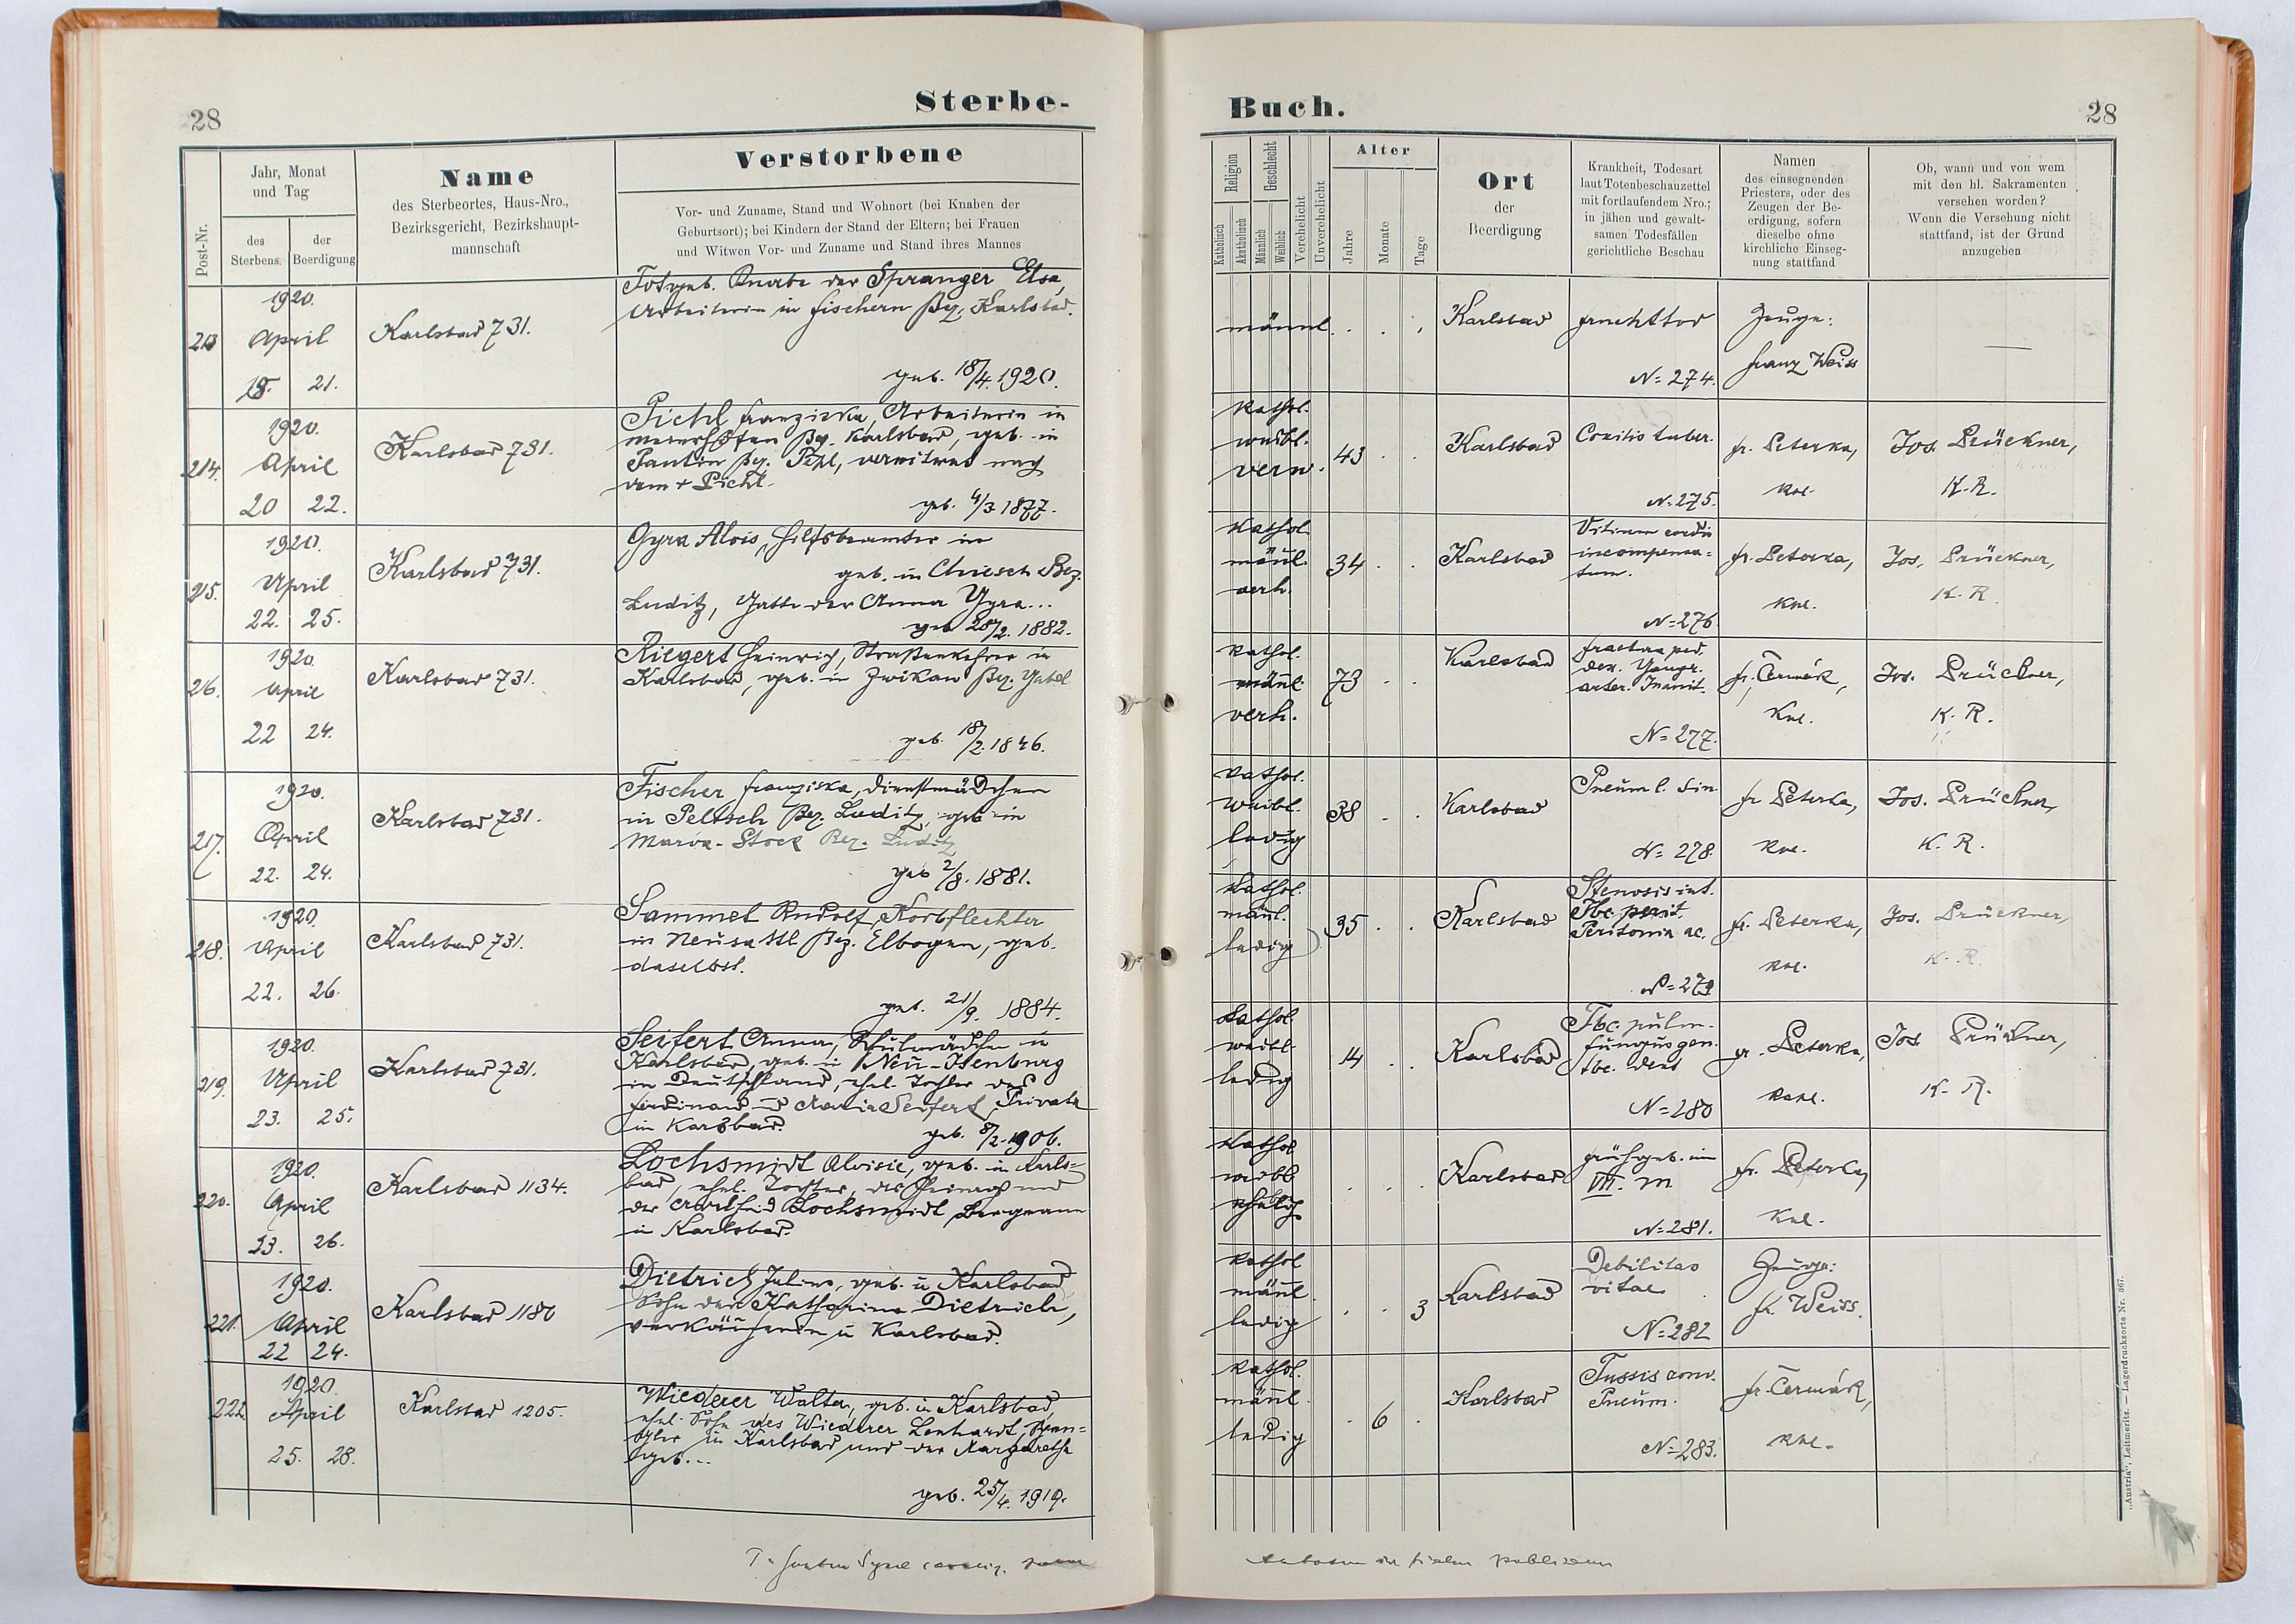 28
Sterbe-
Post-Nr.
Jahr, Monat
und Tag
des
Sterbens.
der
Beerdigung
Name
des Sterbeortes, Haus-Nro.,
Bezirksgericht, Bezirkshaupt-
mannschaft
Verstorbene
Vor- und Zuname, Stand und Wohnort (bei Knaben der
Geburtsort); bei Kindern der Stand der Eltern; bei Frauen
und Witwen Vor- und Zuname und Stand ihres Mannes
213
1920.
April
21.
Karlsbad 731.
Totgeb. Knabe der Spranger Elsa,
Arbeiterin in Fischern Bez. Karlsbad.
geb. 18/4. 1920.
214.
1920.
April
20 22.
Karlsbad 731.
Pichl Franziska, Arbeiterin in
Meierhöfen Bez. Karlsbad, geb. in
Bez. verwitwet nach
dem + Pichl.
geb. 4/3 1877.
215.
1920.
April
22. 25.
Karlsbad 731.
Gyra Alois, Hilfsbeamter in
geb. in Chiesch Bez.
Luditz, Gatte der Anna Gyra...
geb 28/2. 1882.
216.
1920.
April
22 24.
Karlsbad 731.
Riegert Heinrich, Straßenkehrer in
Karlsbad, geb. in Zwikau Bez. Gabel
geb. 18/2. 1846.
217.
1920.
April
22. 24.
Karlsbad 731.
Fischer Franziska, Dienstmädchen
in Peltsch Bez. Luditz, geb in
Maria-Stock Bez. Luditz
geb 2/8. 1881.
218.
1920.
April
22. 26.
Karlsbad 731.
Sammet Rudolf, Korbflechter
in Neusattl Bez. Elbogen, geb.
daselbst.
geb. 21/9. 1884.
219.
1920.
April
23. 25.
Karlsbad 731.
Seifert Anna, Schulmädchen in
Karlsbad, geb. in Neu-Isenburg
in Deutschland, ehel. Tochter des
Ferdinand und Maria Seifert, Private
in Karlsbad.
geb. 8/2. 1906.
220.
1920.
April
23. 26.
Karlsbad 1134.
Lochsmidt Aloisie, geb. in Karls=
bad, ehel. Tochter des Heinrich und
der Lochsmidt
in Karlsbad.
221.
1920.
April
22 24.
Karlsbad 1180
Dietrich Julius, geb. in Karlsbad
Sohn der Katharina Dietrich,
Verkäuferin in Karlsbad.
222
1920.
April
25. 28.
Karlsbad 1205.
Wiederer Walter, geb. in Karlsbad,
ehel. Sohn des Wiederer Leonhardt, Spen=
gler in Karlsbad und der Margarethe
geb...
geb. 25/4. 1919.
Buch.
28
Religion
Katholisch
Akatholisch
Geschlecht
Männlich
Weiblich
Verehelicht
Unverehelicht
Alter
Jahre
Monate
Tage
Ort
der
Beerdigung
Krankheit, Todesart
laut Totenbeschauzettel
mit fortlaufendem Nro.;
in jähen und gewalt-
samen Todesfällen
gerichtliche Beschau
Namen
des einsegnenden
Priesters, oder des
Zeugen der Be-
erdigung, sofern
dieselbe ohne
kirchliche Einseg-
nung stattfand
Ob, wann und von wem
mit den hl. Sakramenten
versehen worden?
Wenn die Versehung nicht
stattfand, ist der Grund
anzugeben
männl.
Karlsbad
Fruchttod
N=274.
Zeuge:
Franz Weiss
kathol.
weibl.
verw.
43
Karlsbad
Coxitis tuber.
N=275.
fr. Peterka,
Kpl.
Jos. Brückner,
K.R.
kathol.
männl.
verh.
34
Karlsbad
Vitium cordis
incompensa=
tum.
N=276
fr. Peterka,
Kpl.
Jos. Brückner,
K.R.
kathol.
männl.
verh.
73
Karlsbad
fractura ped.
dex. Gangr.
arter. Inanit.
N=277.
fr. Čermák,
Kpl.
Jos. Brückner,
K.R.
kathol.
weibl.
ledig
38
Karlsbad
Pneum l. sin
N=278.
fr Peterka,
Kpl.
Jos. Brückner,
K.R.
kathol.
männl.
ledig
35
Karlsbad
Stenosis int.
Tbc. perit.
Peritonia ac.
N=279
fr. Peterka,
Kpl.
Jos. Brückner,
K.R.
kathol.
weibl.
ledig
14
Karlsbad
Tbc. pulm.
fungus gen.
tbc. dext
N=280
fr. Peterka,
Kapl.
Jos Brückner,
K.R.
kathol
weibl
Karlsbad
Frühgeb. im
VII. M
N=281.
fr. Peterka,
Kpl.
kathol
männl.
ledig
3
Karlsbad
Debilitas
vitae
N=282
Zeuge:
fr. Weiss.
kathol.
männl.
ledig
6
Karlsbad
Tussis conv.
Pneum.
N=283.
fr. Čermák,
Kpl.
„Austria“, Leitmeritz. — Lagerdrucksorte Nr. 367.